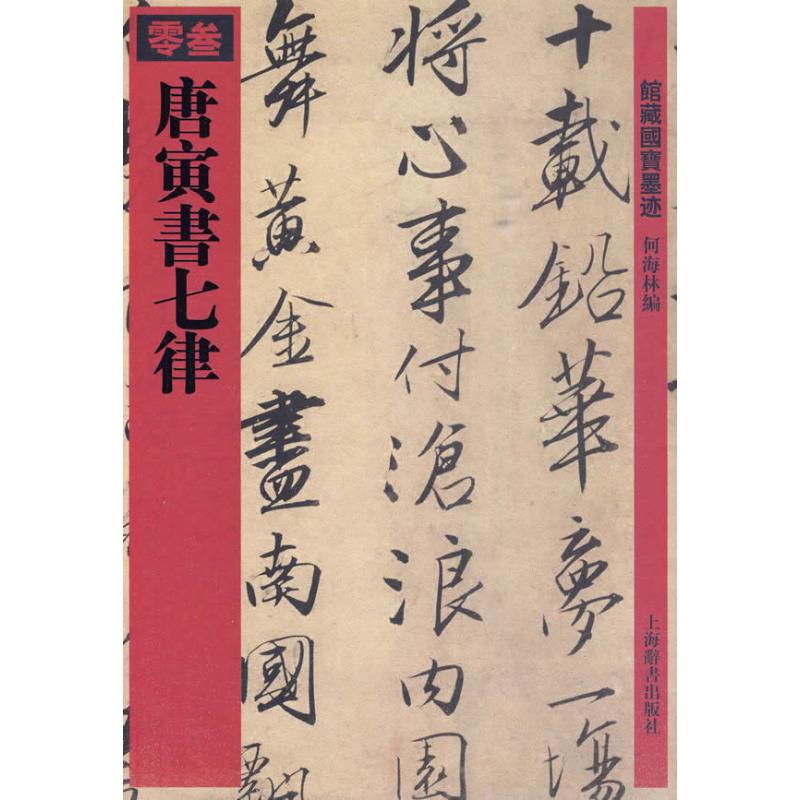 館藏國寶墨迹
何海林編
上海辭書出版社
十載鉛華夢一場
將心事付滄浪内園
舞黄金盡南國
零叁
唐寅書七律